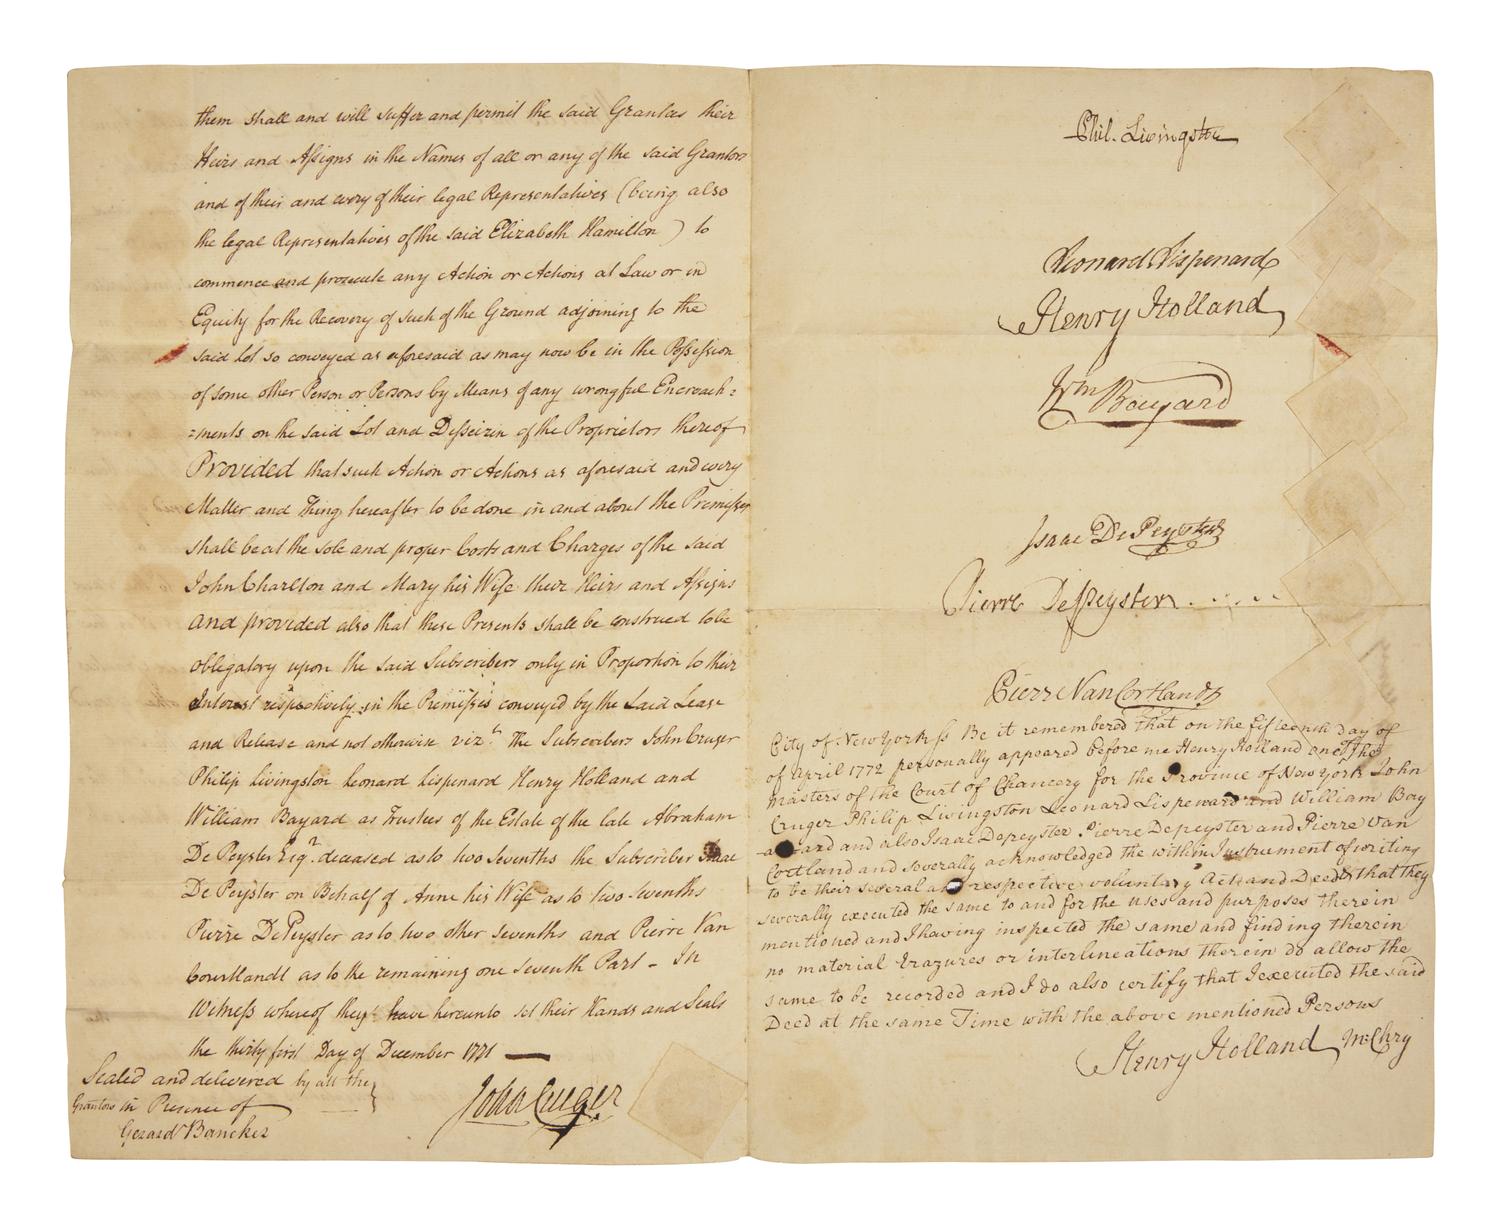 them shall and will suffer and permit the said Grantees their
Heirs and Assigns in the Names of all or any of the said Grantors
and of their and every of their legal Representatives (being also
the legal Representatives of the said Elizabeth Hamilton) to
commence and prosecute any Action or Actions at Law or in
Equity for the Recovery of such of the Ground adjoining to the
said Lot so conveyed as aforesaid as may now be in the Possession
of some other Person or Persons by Means of any wrongful Encroach=
=ments on the said Lot and Desseizin of the Proprietors thereof
Provided that such Action or Actions as aforesaid and every
Matter and Thing hereafter to be done in and about the Premisses
shall be at the sole and proper Costs and Charges of the said
John Charlton and Mary his Wife their Heirs and Assigns
and provided also that these Presents shall be construed to be
obligatory upon the said Subscribers only in Proportion to their
Interest respectively in the Premisses conveyed by the said Lease
and Release and not otherwise vizt. the Subscribers John Cruger
Philip Livingston Leonard Lispenard Henry Holland and
William Bayard as Trustees of the Estate of the late Abraham
De Peyster Esqr. deceased as to two sevenths the Subscriber Isaac
De Peyster on Behalf of Anne his Wife as to two sevenths
Pierre DePeyster as to two other sevenths and Pierre Van
Courtlandt as to the remaining one seventh Part - In
Witness whereof they have hereunto set their Hands and Seals
the thirty first Day of December 1771 —
Sealed and delivered by all the
Grantors in Presence of
Gerard Bancker
John Cruger
Phil. Livingston
Leonard Lispenard
Henry Holland
Wm Bayard
Isaac De Peyster
Pierre DePeyster
Pierre Van Cortlandt
City of New York ss Be it remembered that on the fifteenth day of
of April 1772 personally appeared before me Henry Holland one of the
masters of the Court of Chancery for the Province of New York John
Cruger Philip Livingston Leonard Lispenard and William Bay
ard and also Isaac Depeyster Pierre Depeyster and Pierre Van
Cortland and severally acknowledged the within Instrument of writing
to be their several and respective voluntary Acts and Deeds that they
severally executed the same to and for the uses and purposes therein
mentioned and I having inspected the same and finding therein
no material Erazures or interlineations therein do allow the
same to be recorded and I do also certify that I executed the said
Deed at the same Time with the above mentioned Persons
Henry Holland M: Chry